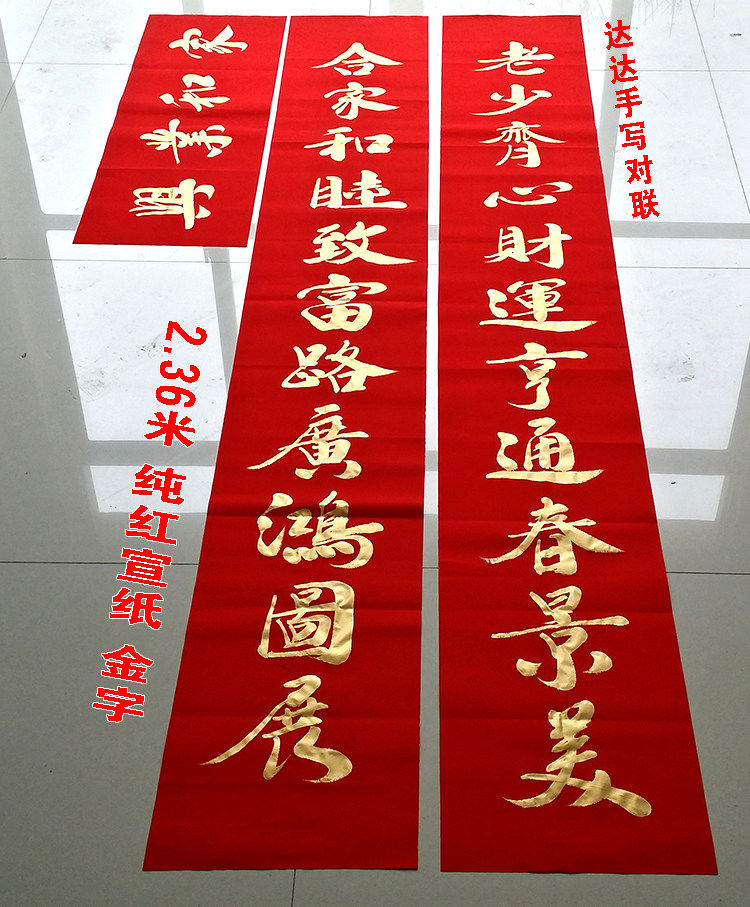 达达手写对联
老少齊心財運亨通春景美
合家和睦致富路廣鴻圖展
家和業興
2.36米 纯红宣纸 金字